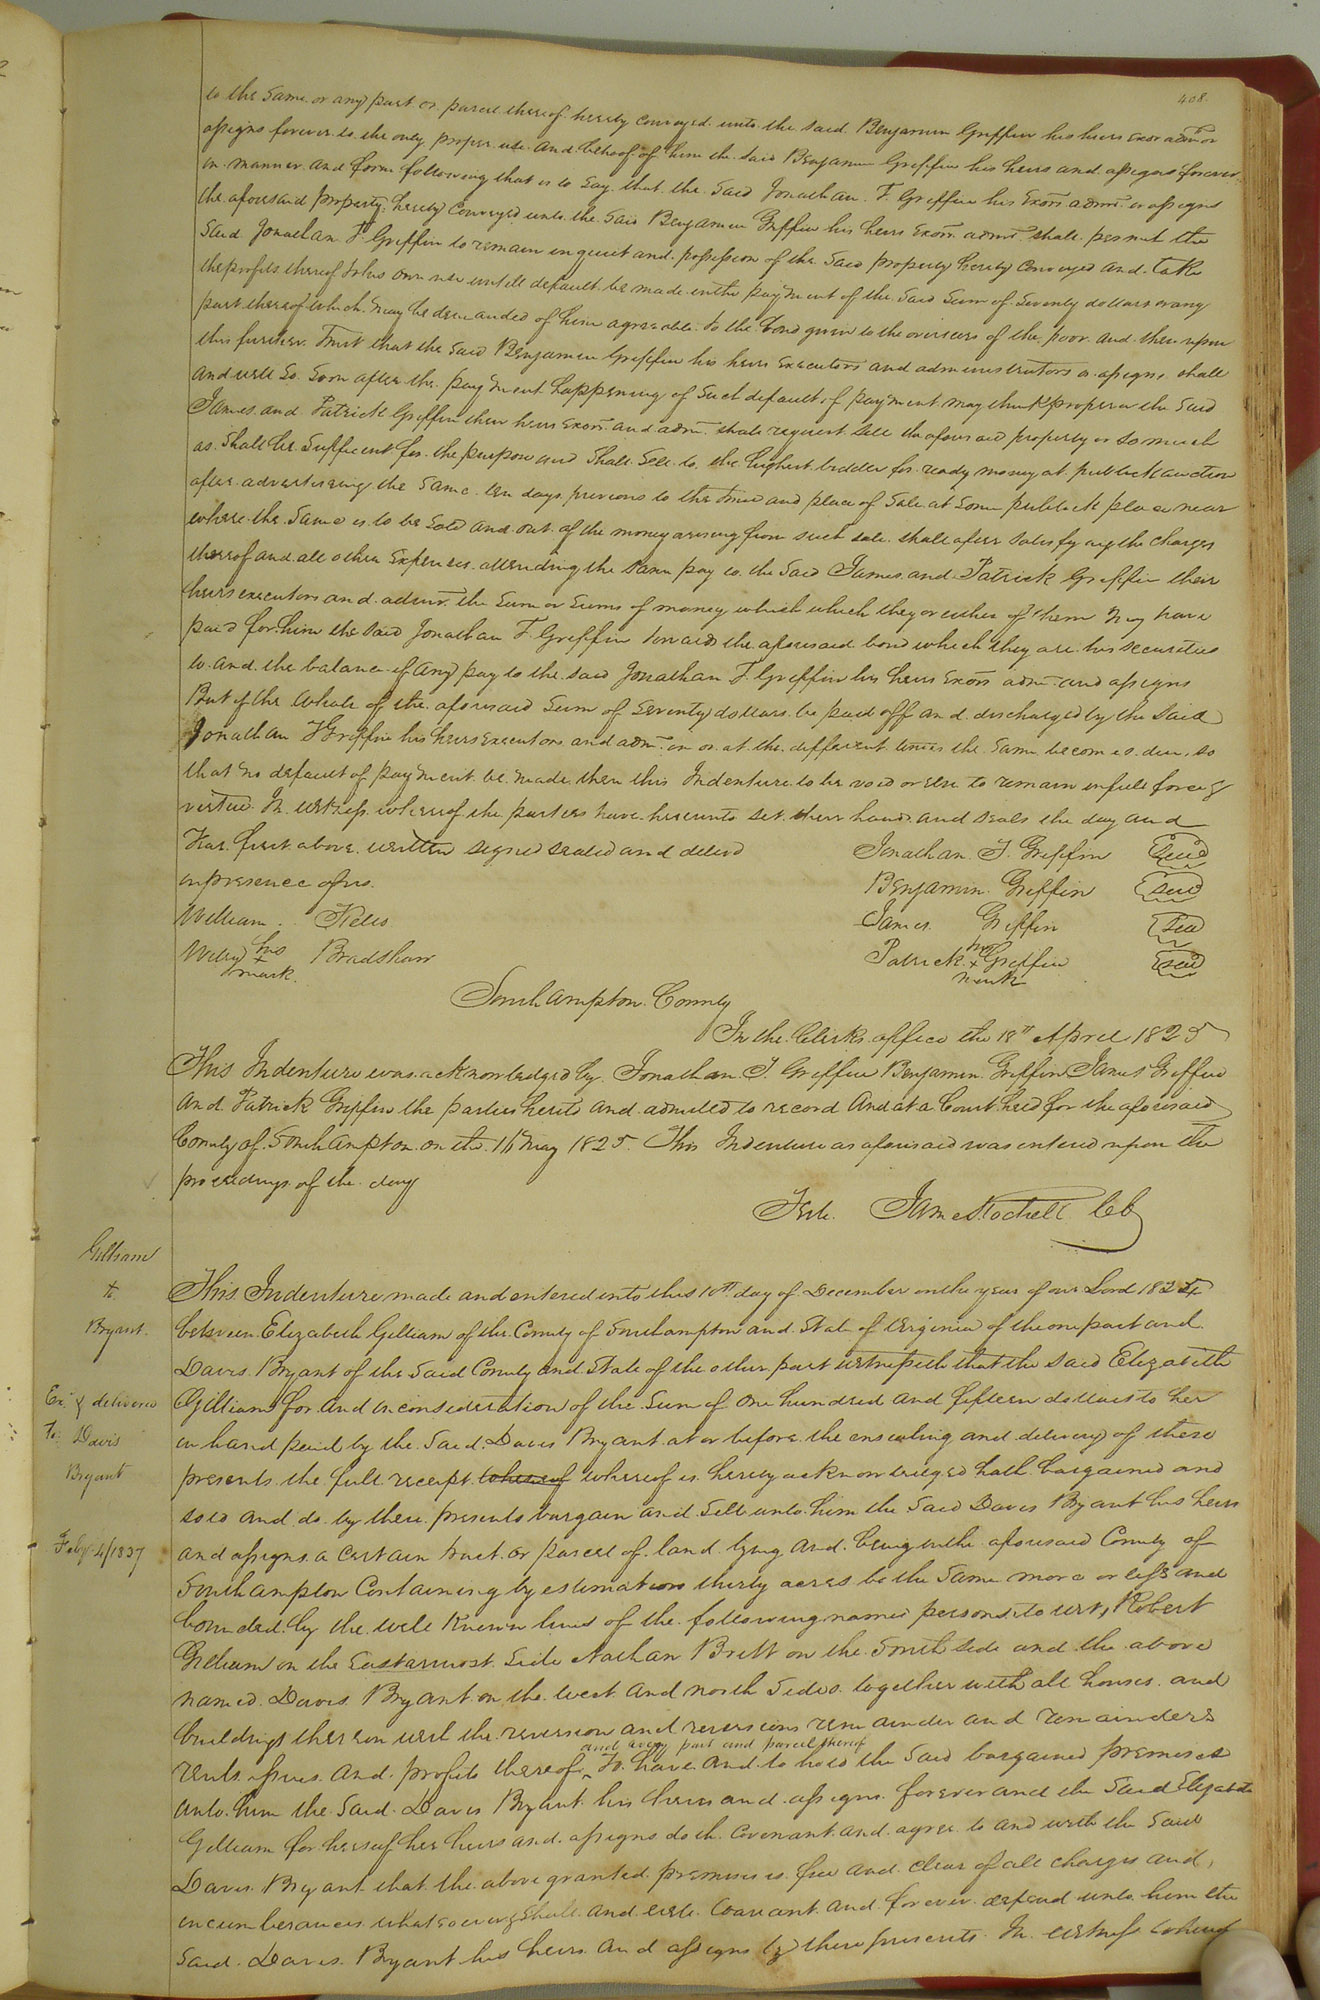 408.
to the Same or any part or parcel thereof hereby conveyed unto the said Benjamin Griffin his heirs exor admr or
assigns forever to the only proper use and behoof of him the said Benjamin Griffin his heirs and assigns forever
in manner and form following that is to say that the said Jonathan F. Griffin his Exors admr or assigns
the aforesaid property hereby Conveyed unto the Said Benjamin Griffin his heirs Exors admr shall permit the
Said Jonathan F Griffin to remain in quiet and possession of the Said property hereby Conveyed and take
the profits thereof to his own use untill default be made in the payment of the Said Sum of Seventy dollars or any
part thereof which may be demanded of him agreeable to the bond given to the overseers of the poor and then upon
this further Trust that the Said Benjamin Griffin his heirs Executors and administrators or assigns shall
and will So Soon after the payment happening of Such default of payment may think proper or the Said
James and Patrick Griffin their heirs Exors and adm shall request Sell the aforesaid property or so much
as Shall be Sufficient for the purpose and Shall Sell to the highest bidder for ready money at publick auction
after advertiseing the Same ten days previous to the time and place of Sale at Some publick place near
where the Same is to be Sold and out of the money arising from such sale shall after Satisfying the charges
thereof and all other Expenses attending the Same pay to the Said James and Patrick Griffin their
heirs executors and admr the Sum or Sums of money which which they or either of them may have
paid for him the said Jonathan F. Griffin towards the aforesaid bond which they are his securities
to and the balance if any pay to the said Jonathan F. Griffin his heirs Exors adm and assigns
But if the whole of the aforesaid Sum of Seventy dollars be paid off and discharged by the Said
Jonathan F Griffin his heirs executors and adm in or at the different times the Same becomes due, so
that no default of payment be made then this Indenture to be void or else to remain in full force &
virtue. In witness whereof the parties have hereunto set their hands and seals the day and
Year first above written signed sealed and delivd
in presence of us.
Jonathan F. Griffin Seal
Benjamin Griffin Seal
William
James Griffin Seal
Wiley his x mark Bradshaw
Patrick his x mark Griffin Seal
Southampton County
In the Clerks office the 18th April 1825
This Indenture was acknowledged by Jonathan F. Griffin Benjamin Griffin James Griffin
And Patrick Griffin the parties hereto and admited to record And at a Court held for the aforesaid
County of Southampton on the 16th may 1825 This Indenture as aforesaid was entered upon the
proceedings of the day
Teste. James Rochelle CC
Gilliam
to
Bryant.
Ex. & delivered
to Davis
Bryant
Feby 4/1837
This Indenture made and entered into this 10th day of December in the year of our Lord 1824
between Elizabeth Gilliam of the County of Southampton and State of Virginia of the one part and
Davis Bryant of the Said County and State of the other part witnesseth that the said Elizabeth
Gilliam for and in consideration of the Sum of One hundred and fifteen dollars to her
in hand paid by the Said Davis Bryant at or before the ensealing and delivery of these
presents the full receipt whereof whereof is hereby acknowledged hath bargained and
sold and do by these presents bargain and Sell unto him the Said Davis Bryant his heirs
and assigns a Certain tract or parcel of land lying and being in the aforesaid County of
Southampton Containing by estimation thirty acres be the Same more or less and
bounded by the well known lines of the following named persons to wit, Robert
Gilliam on the Easternmost Side Nathan Britt on the South side and the above
named Davis Bryant on the west and north Sides together with all houses and
buildings thereon with the reversion and reversions remainder and remainders
and every part and parcel thereof
rents issues and profits thereof ^ To have and to hold the said bargained premises
unto him the Said Davis Bryant his heirs and assigns forever and the Said Elizabeth
Gilliam for herself her heirs and assigns doth Covenant and agree to and with the Said
Davis Bryant that the above granted premises is free and clear of all charges and
incumberances whatsoever & Shall and will warrant and forever defend unto him the
Said Davis Bryant his heirs and assigns by these presents. In witness whereof